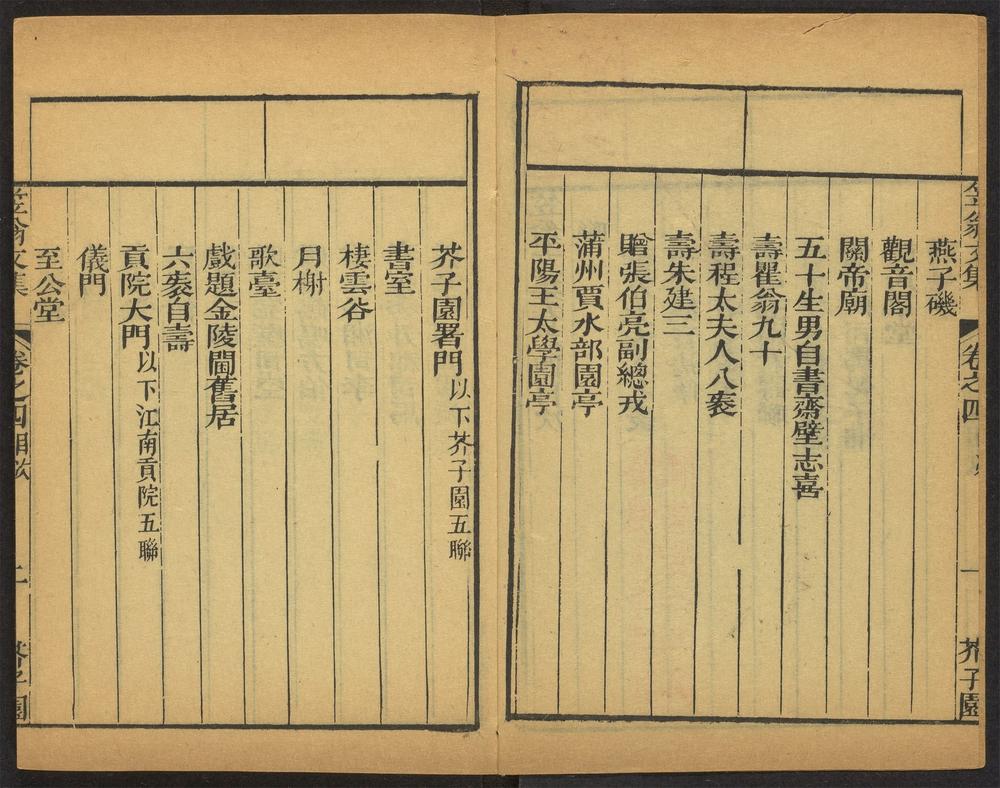 笠翁文集 卷之四 一 芥子園
燕子磯
觀音閣
關帝廟
五十生男自書齋壁志喜
壽瞿翁九十
壽程太夫人八袠
壽朱建三
贈張伯亮副總戎
蒲州賈水部園亭
平陽王太學園亭
芥子園署門以下芥子園五聯
書室
棲雲谷
月榭
歌臺
戲題金陵閘舊居
六袠自壽
貢院大門以下江南貢院五聯
儀門
至公堂
笠翁文集 卷之四 二 芥子園